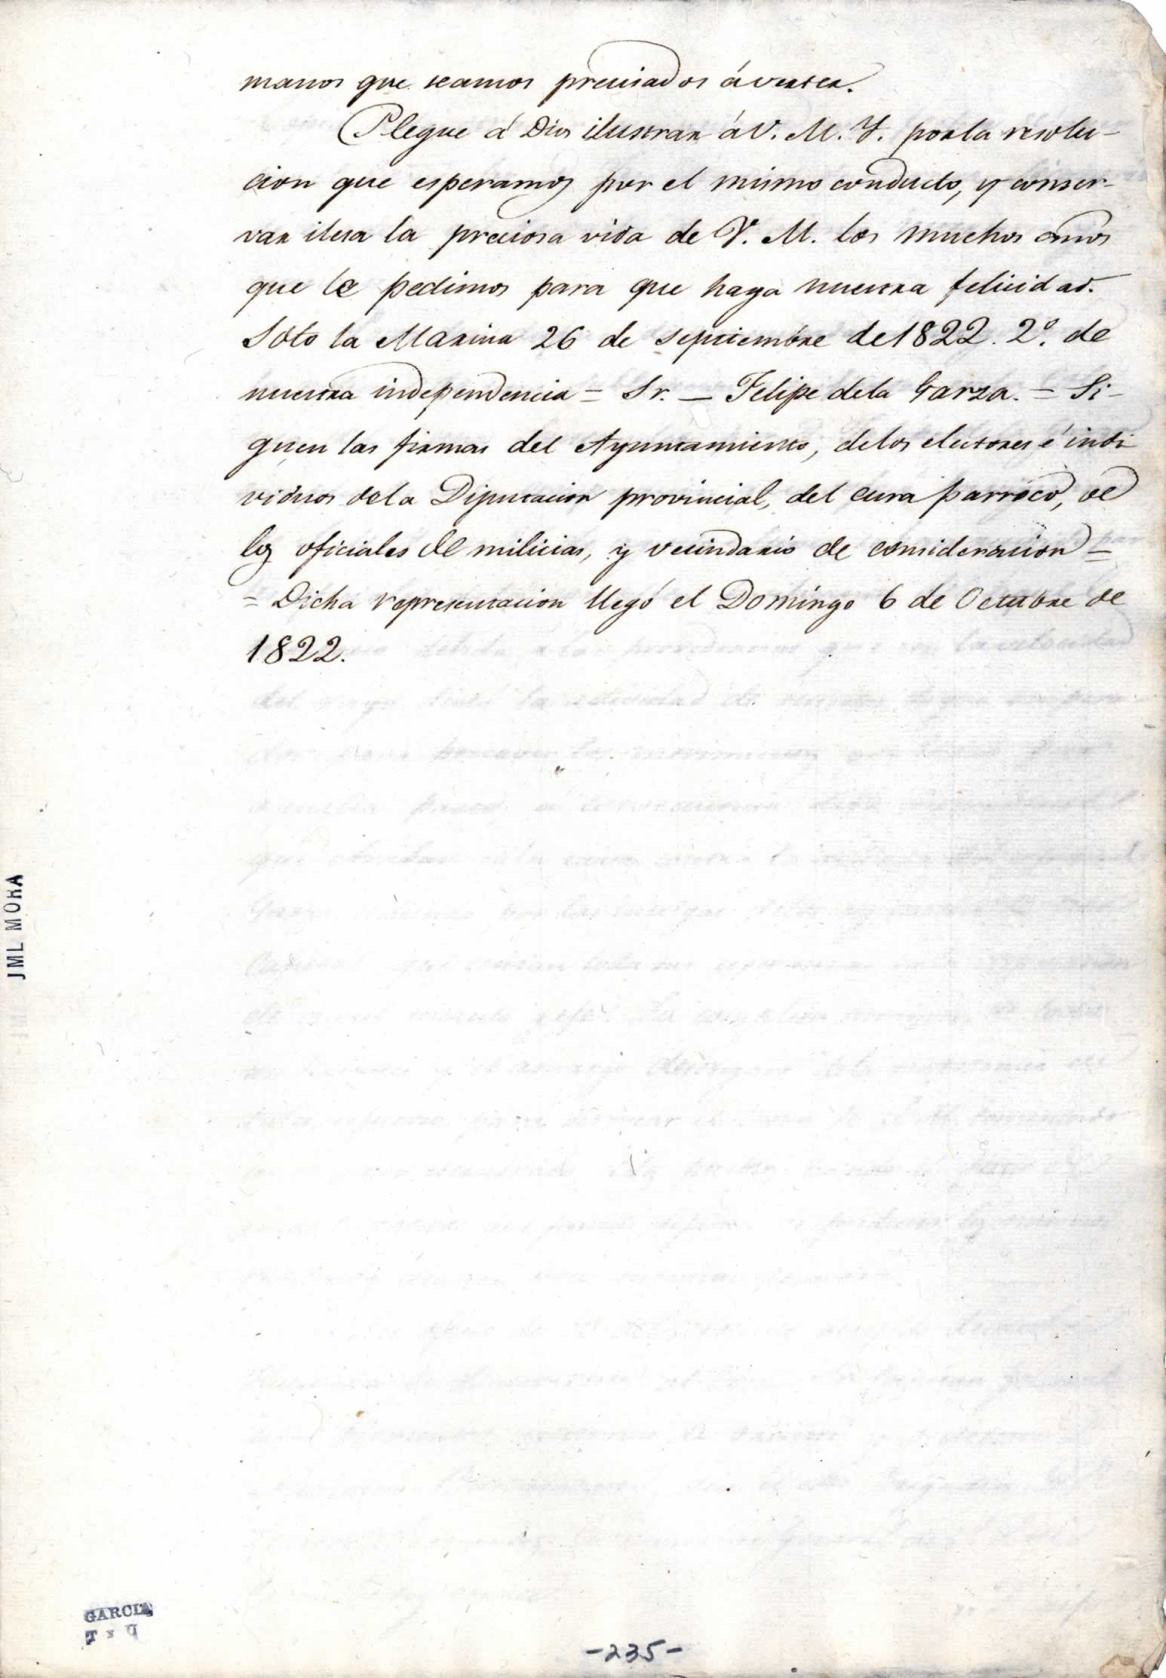 manos que seamos precisados á verter.
Plegue á Dios ilustrar á V. M. Y. por la resolu-
cion que esperamos por el mismo conducto, y conser-
var ilesa la preciosa vida de V. M. los muchos años
que le pedimos para que haga nuestra felicidad.
Soto la Marina 26 de septiembre de 1822. 2º. de
nuestra independencia = Sr. — Felipe de la Garza. = Si-
guen las firmas del Ayuntamiento, de los electores é indi
viduos de la Diputacion provincial, del cura parroco, de
los oficiales de milicias, y vecindario de consideracion =
= Dicha representacion llegó el Domingo 6 de Octubre de
1822.
JML MORA
GARCIA
-235-